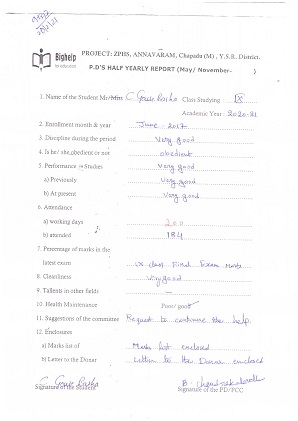 Bighelp
for education
PROJECT: ZPHS, ANNAVARAM, Chapadu (M), Y.S.R. District.
P.D'S HALF YEARLY REPORT (May/ November- )
1. Name of the Student Mr/Miss C Gouse Basha Class Studying IX
Academic Year - 2020-21
2. Enrollment month & year June - 2017
3. Discipline during the period Very good
4. Is he/ she,obedient or not obedient
5. Performance in Studies Very good
a) Previously Very good
b) At present Very good
6. Attendance
a) working days 200
b) attended 184
7. Percentage of marks in the
latest exam class Final Exam Marks
8. Cleanliness Very good
9. Tallents in other fields —
10. Health Maintenance Poor/ good
11. Suggestions of the committee Request to continue the help.
12. Enclosures
a) Marks list of Marks list enclosed
b) Letter to the Donar Letter to the Donar enclosed
C. Gouse Basha
Signature of the Student
Signature of the PD/PCC